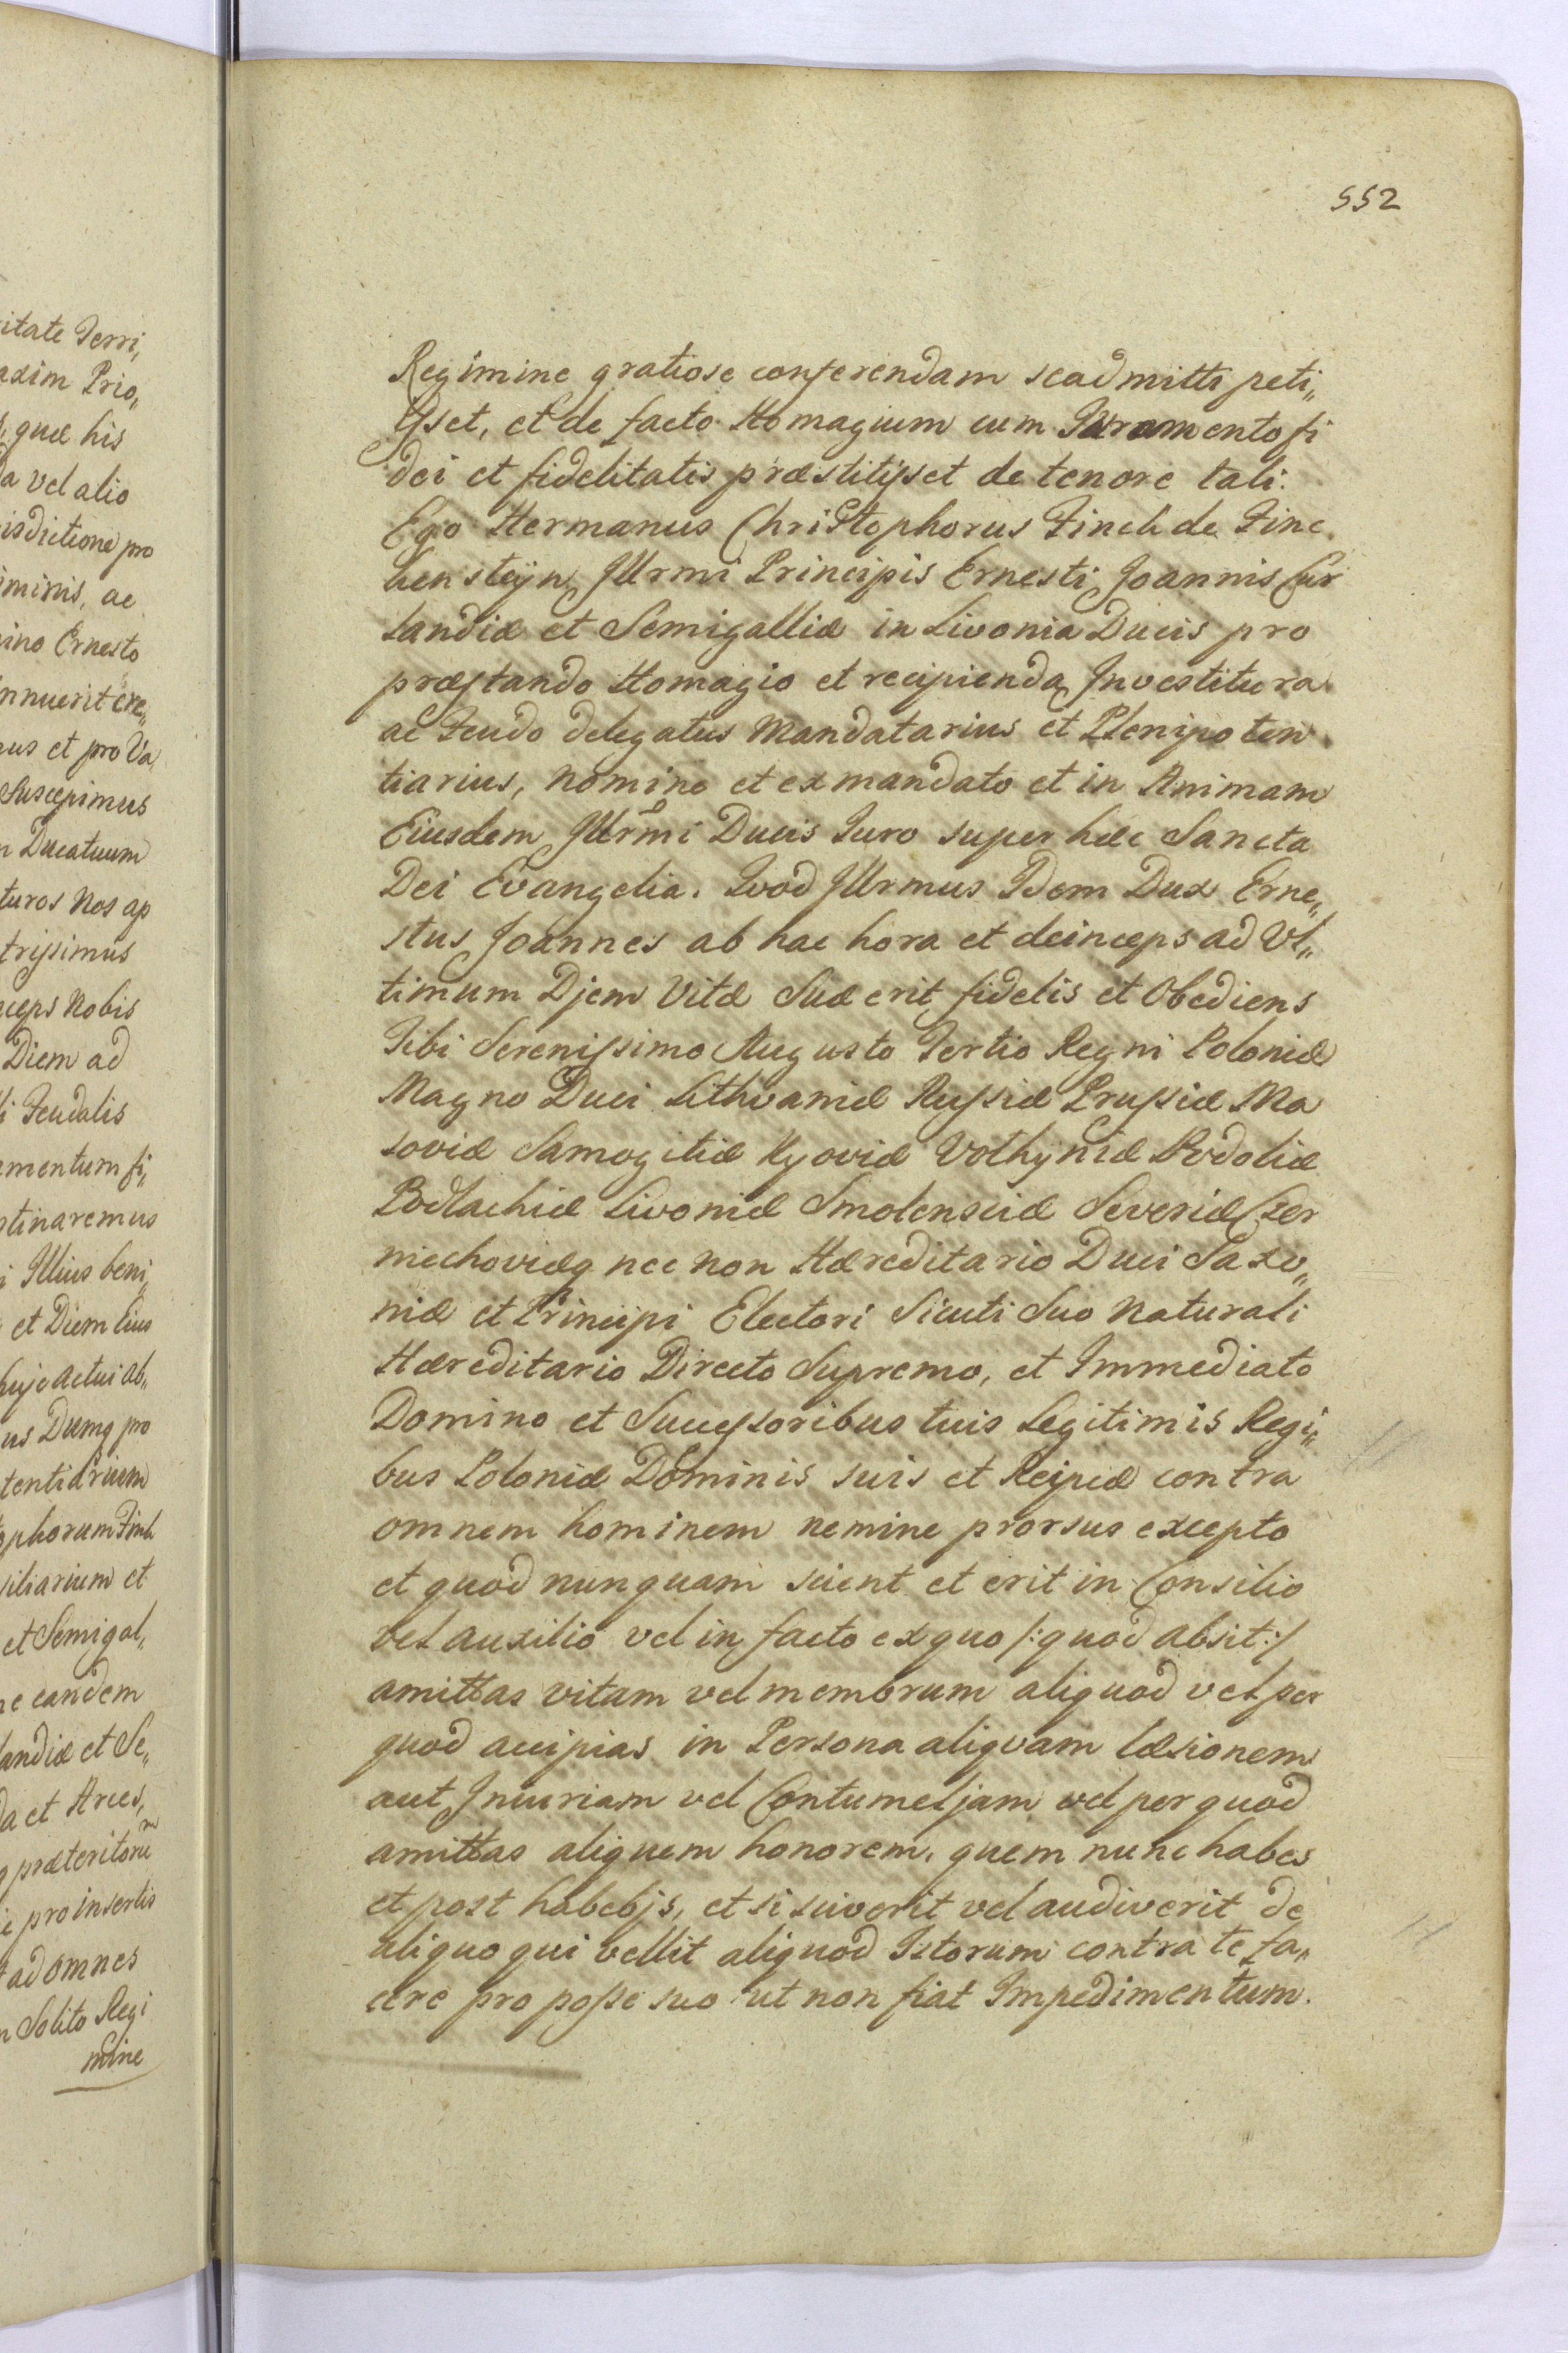 itate Terri„
axim Prio„
quæ his
a vel alio
isdictione pro
iminis, ac
ino Ernesto
nnuerit
us et pro Va
Suscepimus
n Ducatuum
turos Nos ap
trissimus
ceps Nobis
Diem ad
i Feudalis
amentum fi„
stinaremus
i Illius beni„
et Diem
huic actui ab„
us Dumq pro
tentiarium
ophorum Finck
siliarium et
et Semigal„
ne eandem
landiæ et Se„
da et Arces,
q præteritoru
e pro insertis
ad omnes
n Solito Regi
mine
552
Regimine gratiose conferendam se admitti peti„
ysset, et de facto Homagium cum Juramento fi
dei et fidelitatis præstitisset de tenore tali.
Ego Hermanus Christophorus Finck de Finc„
kensteyn, Illrmi Principis Ernesti Joannis Cur
landiæ et Semigalliæ in Livonia Ducis pro
præstando Homagio et recipienda Investitura
ac Feudo delegatus Mandatarius et Plenipoten„
tiarius, nomine et ex mandato et in Animam
Eiusdem Illrmi Ducis Juro super hæc Sancta
Dei Evangelia. Qvod Illrmus Idem Dux Erne„
stus Joannes ab hac hora et deinceps ad Ul„
timum Djem Vitæ Suæ erit fidelis et Obediens
Tibi Serenissimo Augusto Tertio Regni Poloniæ
Magno Duci Lithvaniæ Russiæ Prussiæ Ma
soviæ Samogitiæ Kyoviæ Volhyniæ Podoliæ
Podlachiæ Livoniæ Smolensciæ Severiæ Czer
niechoviæq nec non Hæreditario Duci Saxo„
niæ et Principi Electori Sicuti Suo Naturali
Hæreditario Directo Supremo, et Immediato
Domino et Successoribus tuis Legitimis Regi„
bus Poloniæ Dominis suis et Reipcæ contra
omnem hominem nemine prorsus excepto
et quod nunquam scient et erit in Consilio
vel auxilio vel in facto ex quo /: quod absit :/
amittas vitam vel membrum aliquod vel per
quod accipias in Persona aliqvam læsionem
aut Iniuriam vel Contumeljam vel per quod
amittas aliquem honorem, quem nunc habes
et post habebjs, et si sciverit vel audiverit de
aliquo qui vellit aliquod Istorum contra te fa„
cere pro posse suo ut non fiat Impedimentum.